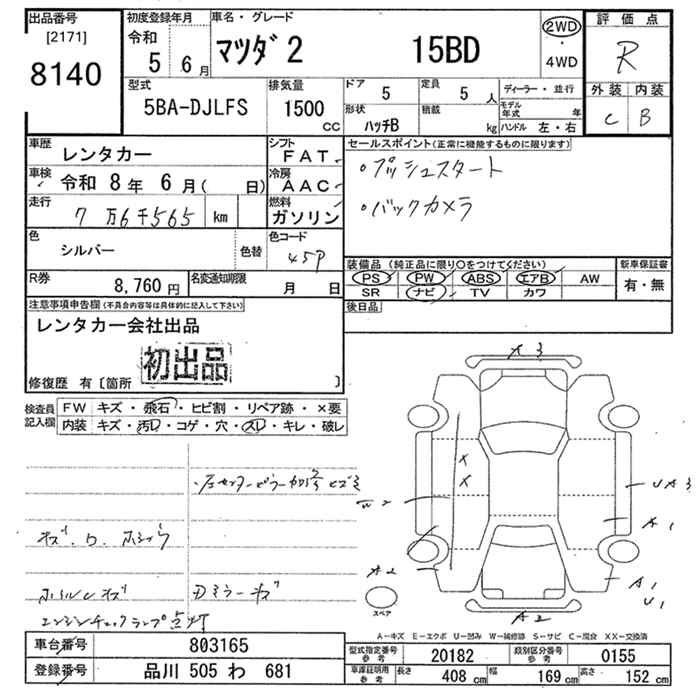 出品番号
[2171]
8140
初度登録年月
令和
5 6月
車名・グレード
マツダ2 15BD
2WD
・
4WD
評価点
R
外装 内装
C B
型式
5BA-DJLFS
排気量
1500
CC
ドア 5
定員 5 人
形状 ハッチB
積載 kg
ディーラー・並行
モデル年式 年
ハンドル 左・右
車歴 レンタカー
シフト FAT
車検 令和 8年 6月( 日)
冷房 AAC
走行 7万6千565 km
燃料 ガソリン
色 シルバー 色替
色コード 45P
R券 8,760円
名変通知期限 月 日
セールスポイント(正常に機能するものに限ります)
・プッシュスタート
・バックカメラ
装備品(純正品に限り○をつけてください)
PS PW ABS エアB AW
SR ナビ TV カワ
新車保証書
有・無
後日品
注意事項申告欄(不具合内容等は具体的に記入して下さい)
レンタカー会社出品
初出品
修復歴 有〔箇所 〕
検査員記入欄
FW キズ・飛石・ヒビ割・リペア跡・×要
内装 キズ・汚レ・コゲ・穴・スレ・キレ・破レ
ホイルキズ
エンジンチェックランプ点灯
A3
X
X
W2
UA3
A1
A2
A1
U1
A2
スペア
A-キズ E-エクボ U-凹み W-補修跡 S-サビ C-腐食 XX-交換済
車台番号 803165
登録番号 品川 505 わ 681
型式指定番号参考 20182
類別区分番号参考 0155
車庫証明用参考 長さ 408 cm 幅 169 cm 高さ 152 cm